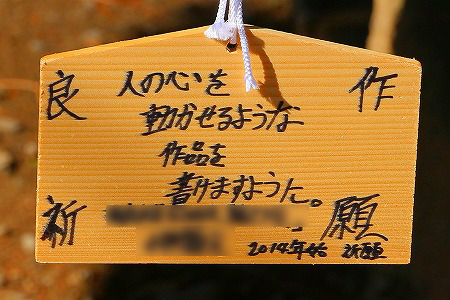 良作祈願
人の心を
動かせるような
作品を
書けますように。
2014年始 祈願